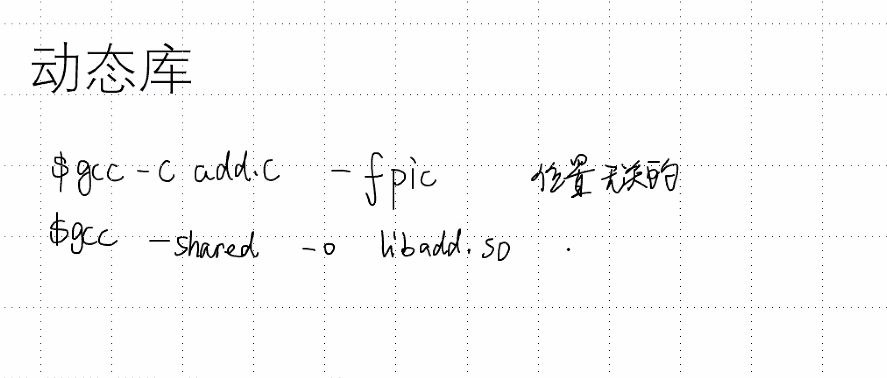 动态库
$gcc -c add.c -fpic 位置无关的
$gcc -shared -o libadd.so .